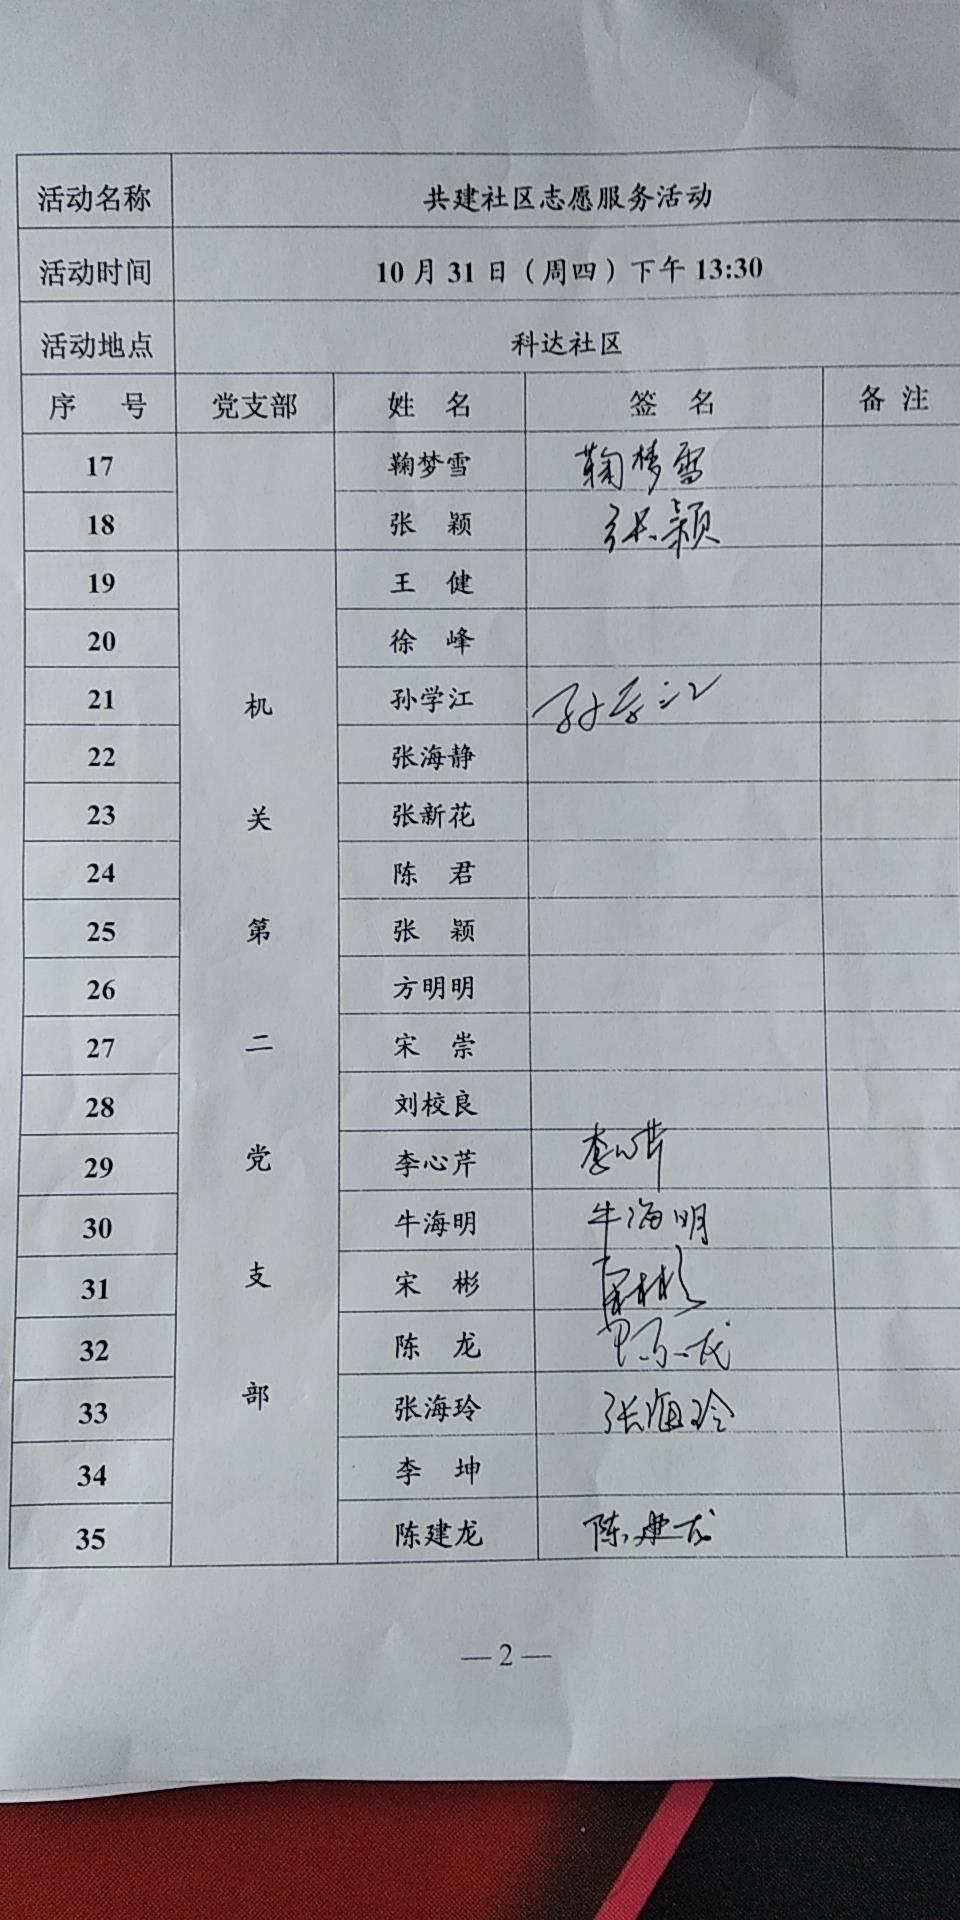 活动名称 共建社区志愿服务活动
活动时间 10月31日（周四）下午13:30
活动地点 科达社区
序 号 党支部 姓 名 签 名 备 注
17 鞠梦雪 鞠梦雪
18 张 颖 张颖
机关第二党支部
19 王 健
20 徐 峰
21 孙学江 孙学江
22 张海静
23 张新花
24 陈 君
25 张 颖
26 方明明
27 宋 崇
28 刘校良
29 李心芹 李心芹
30 牛海明 牛海明
31 宋 彬 宋彬
32 陈 龙
33 张海玲 张海玲
34 李 坤
35 陈建龙 陈建龙
— 2 —